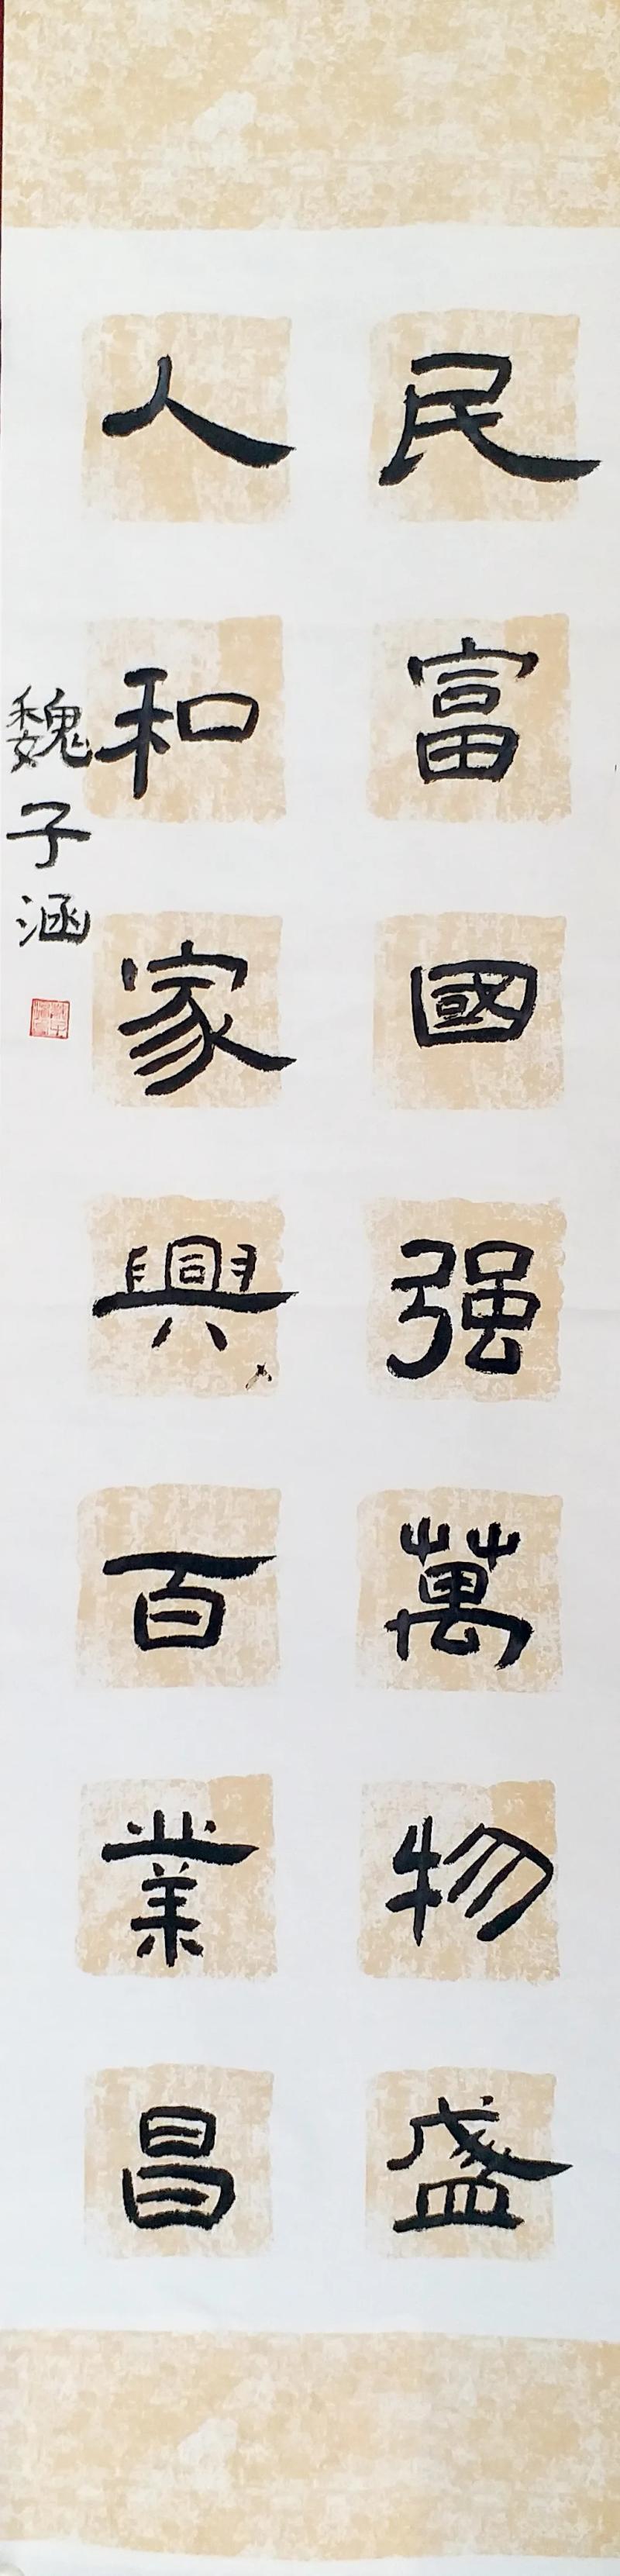 民富國强萬物盛
人和家興百業昌
魏子涵